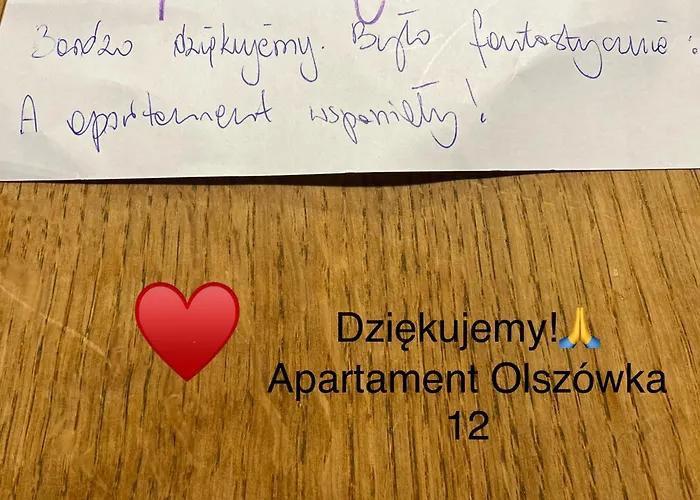 Bardzo dziękujemy. Było fantastycznie!
A apartament wspaniały!
Dziękujemy!🙏
Apartament Olszówka
12